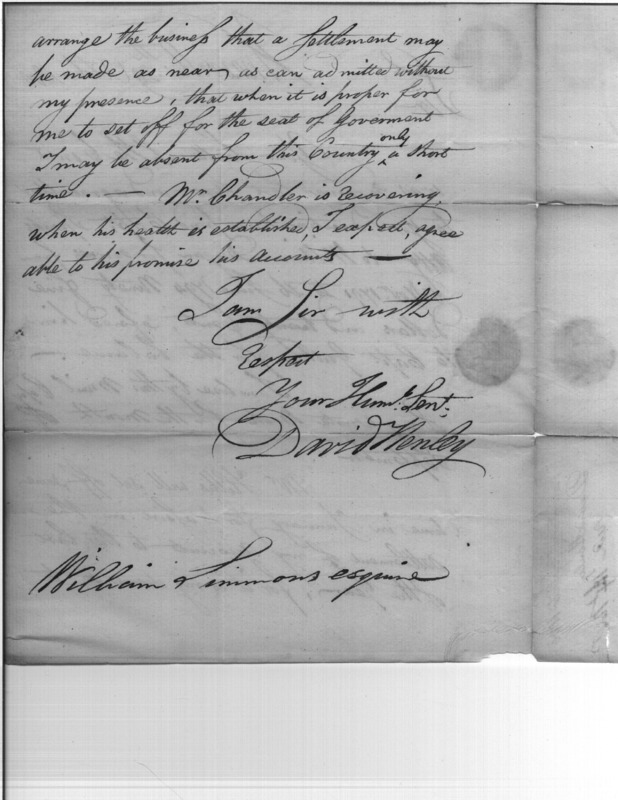 arrange the business that a Settlement may
be made as near as can admitted without
my presence, that when it is proper for
me to set off for the seat of Goverment
I may be absent from this Country only a short
time. — Mr. Chandler is recovering,
when his health is established, I expect, agree
able to his promise his accounts —
I am Sir with
respect
Your Humb. Servt.
David Henley
William Simmons esquire